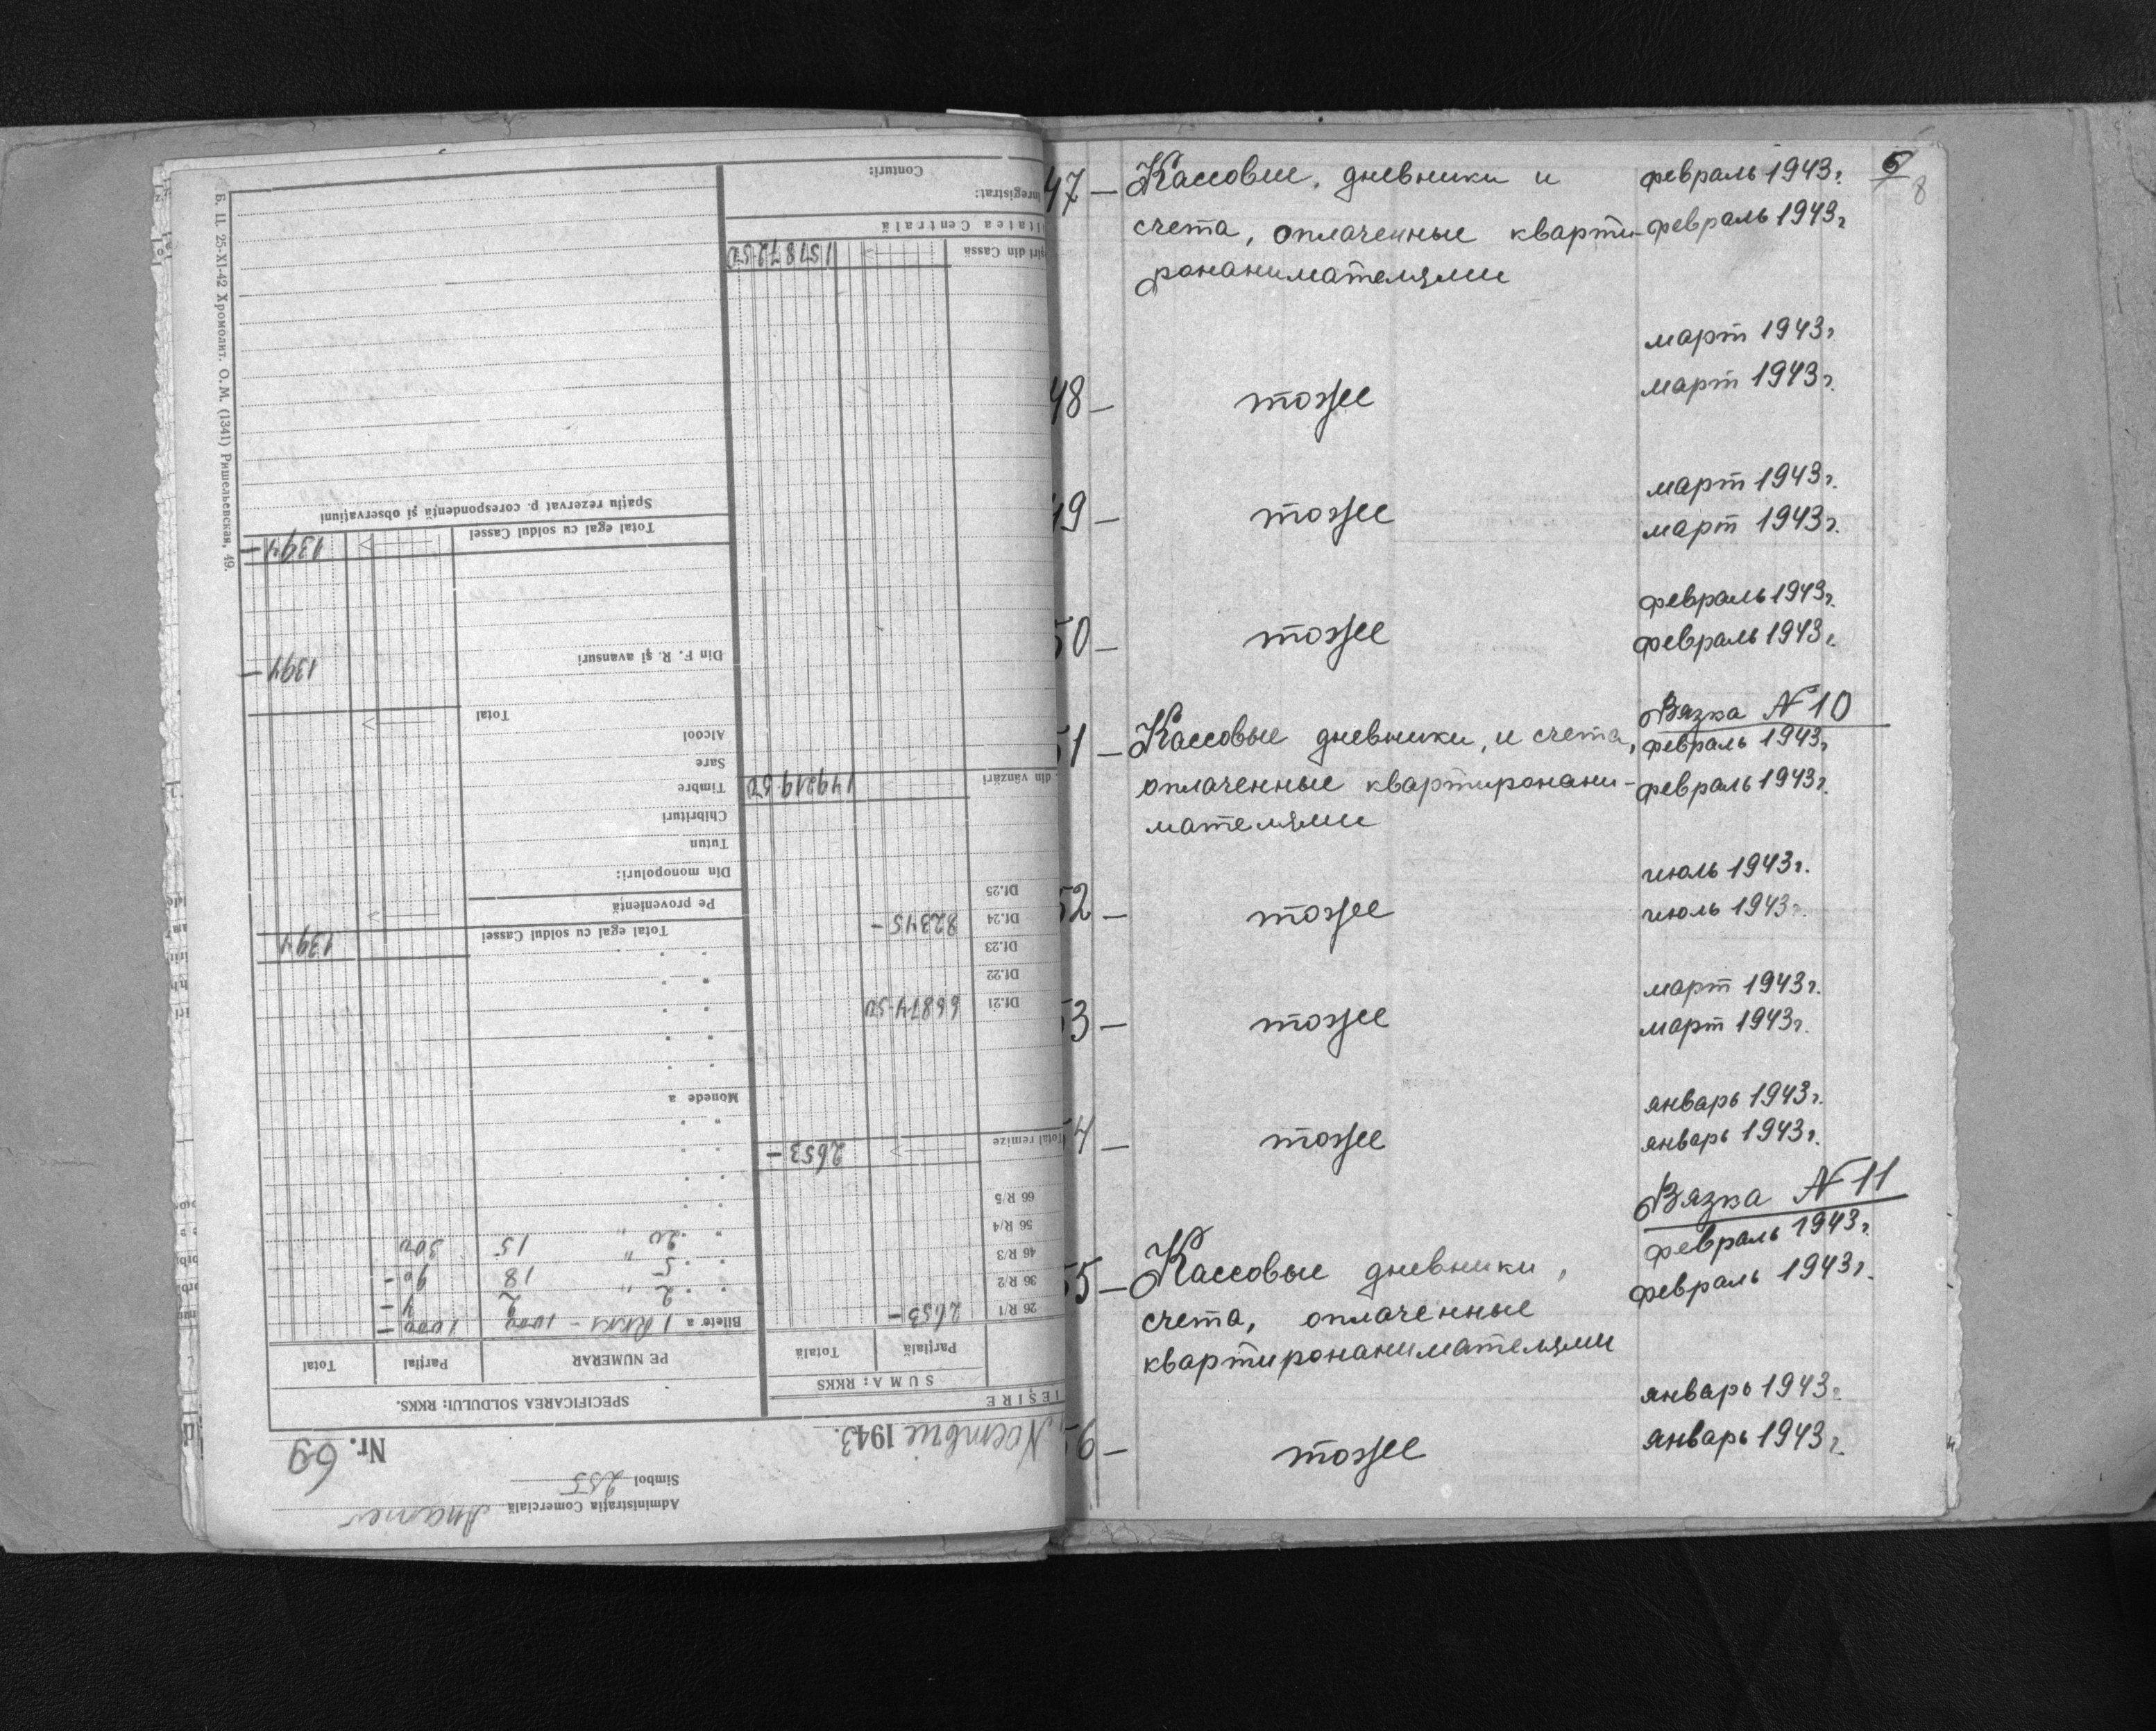 Administrația Comercială
Simbol 255
Nr. 69
Noembrie 1943.
SPECIFICAREA SOLDULUI: RKKS.
PE NUMERAR
Parțial
Total
Bilete a 1 RKKS - 1000 1000 -
" 2 " 2 4 -
" 5 " 18 90 -
" 20 " 15 300
Monede a
Total egal cu soldul Cassei 1394
Pe proveniență
Din monopoluri:
Tutun
Chibrituri
Timbre
Sare
Alcool
Total
Din F. R. și avansuri 1394 -
Total egal cu soldul Cassei 1394 -
Spațiu rezervat p. corespondență și observațiuni
IEȘIRE
SUMA: RKKS
Parțială
Totală
26 R/1 2653 -
36 R/2
46 R/3
56 R/4
66 R/5
Total remize 2653 -
Df.21 66874.50
Df.22
Df.23
Df.24 82345 -
Df.25
din vânzări 149219.50
din Cassa 157872.50
Centrală
înregistrat:
Conturi:
Б. Ц. 25-XI-42 Хромолит. О. М. (1341) Ришельевская, 49.
5
8
47 – Кассовые, дневники и февраль 1943г.
счета, оплаченные кварти- февраль 1943г
ронанимателями
март 1943г.
48 – тоже март 1943г.
март 1943г.
49 – тоже март 1943г.
февраль 1943г.
50 – тоже февраль 1943г.
Вязка № 10
51 – Кассовые дневники, и счета, февраль 1943г
оплаченные квартиронани- февраль 1943г.
мателями
июль 1943г.
52 – тоже июль 1943г.
март 1943г.
53 – тоже март 1943г.
январь 1943г.
54 – тоже январь 1943г.
Вязка № 11
февраль 1943г.
55 – Кассовые дневники, февраль 1943г.
счета, оплаченные
квартиронанимателями
январь 1943г.
56 – тоже январь 1943г.